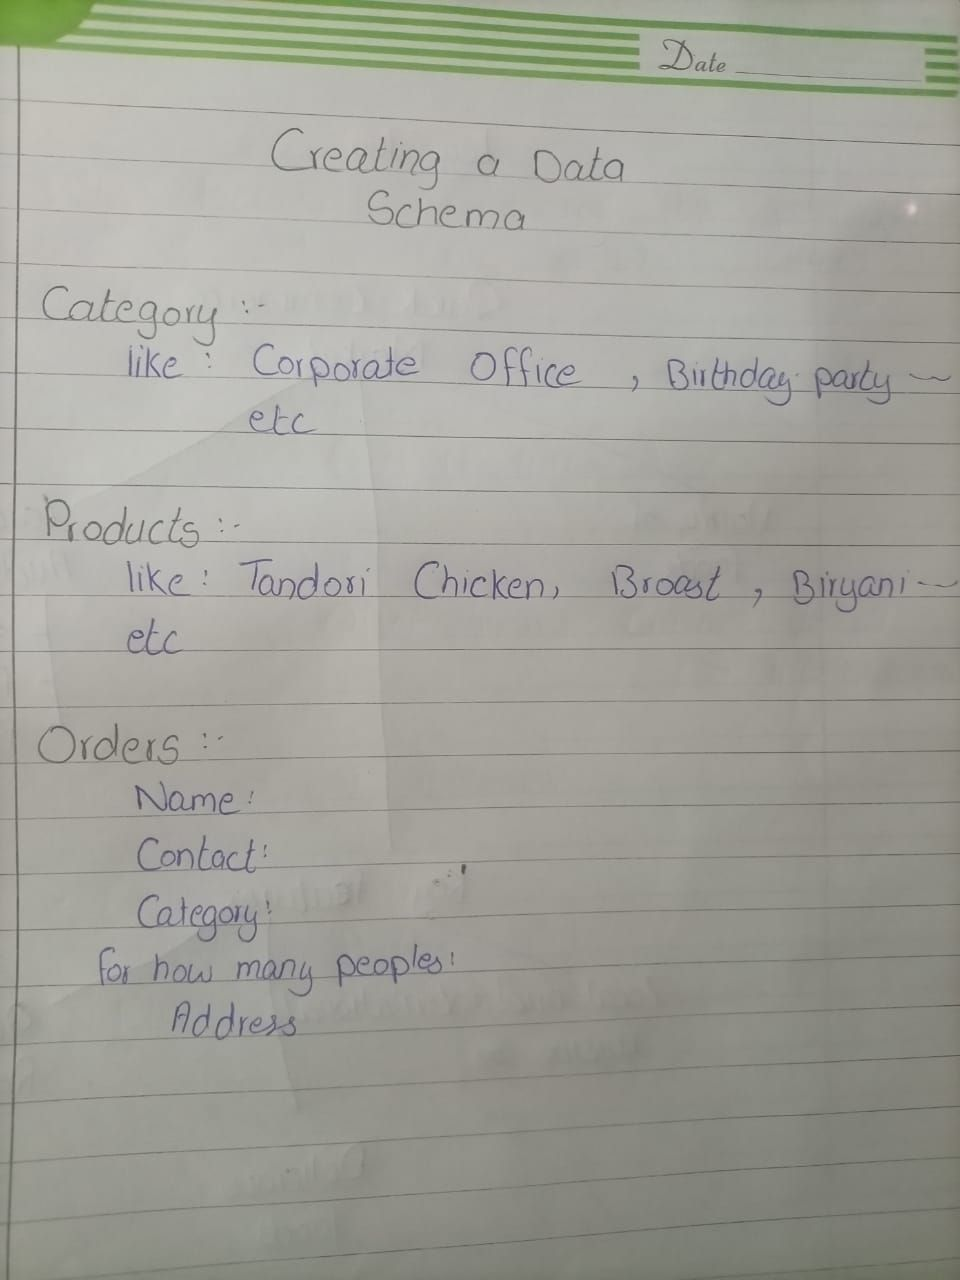 Date
Creating a Data
Schema
Category :-
like : Corporate Office , Birthday party ~
etc
Products :-
like : Tandori Chicken, Broast , Biryani ~
etc
Orders :-
Name :
Contact :
Category :
for how many peoples :
Address